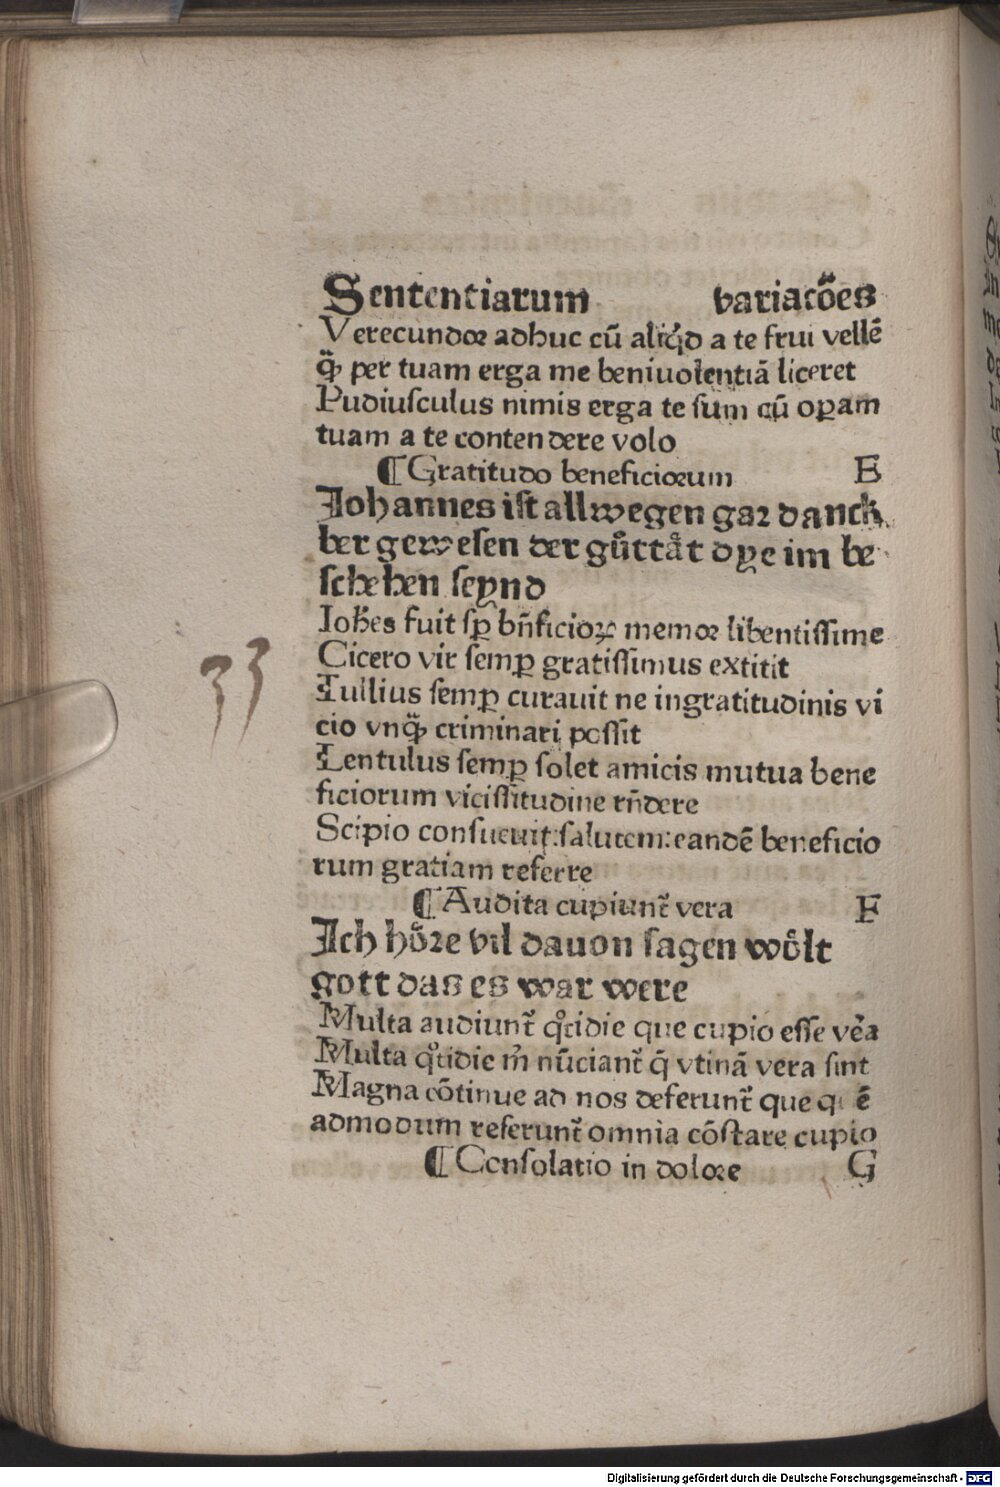 Sententiarum variacões
Verecundor adhuc cū aliqd a te frui vellē
q̄ꝫ per tuam erga me beniuolentiā liceret
Pudiusculus nimis erga te sum cū oꝑam
tuam a te contendere volo
¶ Gratitudo beneficiorum E
Johannes ist allwegen gar danck
ber gewesen der gůttåt dye im be
schehen seynd
Ioh̄es fuit sꝑ bn̄ficioꝝ memor libentissime
Cicero vir semꝑ gratissimus extitit
Tullius semꝑ curauit ne ingratitudinis vi
cio vnq̄ꝫ criminari possit
Lentulus semꝑ solet amicis mutua bene
ficiorum vicissitudine rn̄dere
33
Scipio consueuit: salutem: eandē beneficio
rum gratiam referre
¶ Audita cupiunt᷑ vera F
Ich hoͤre vil dauon sagen woͤlt
gott das es war were
Multa audiunt᷑ qͦtidie que cupio esse v̄ea
Multa qͦtidie m̄ nūciant᷑ q̄ vtinā vera sint
Magna cōtinue ad nos deferunt᷑ que qu ē
admodum referunt᷑ omnia cōstare cupio
¶ Consolatio in dolore G
Digitalisierung gefördert durch die Deutsche Forschungsgemeinschaft - DFG